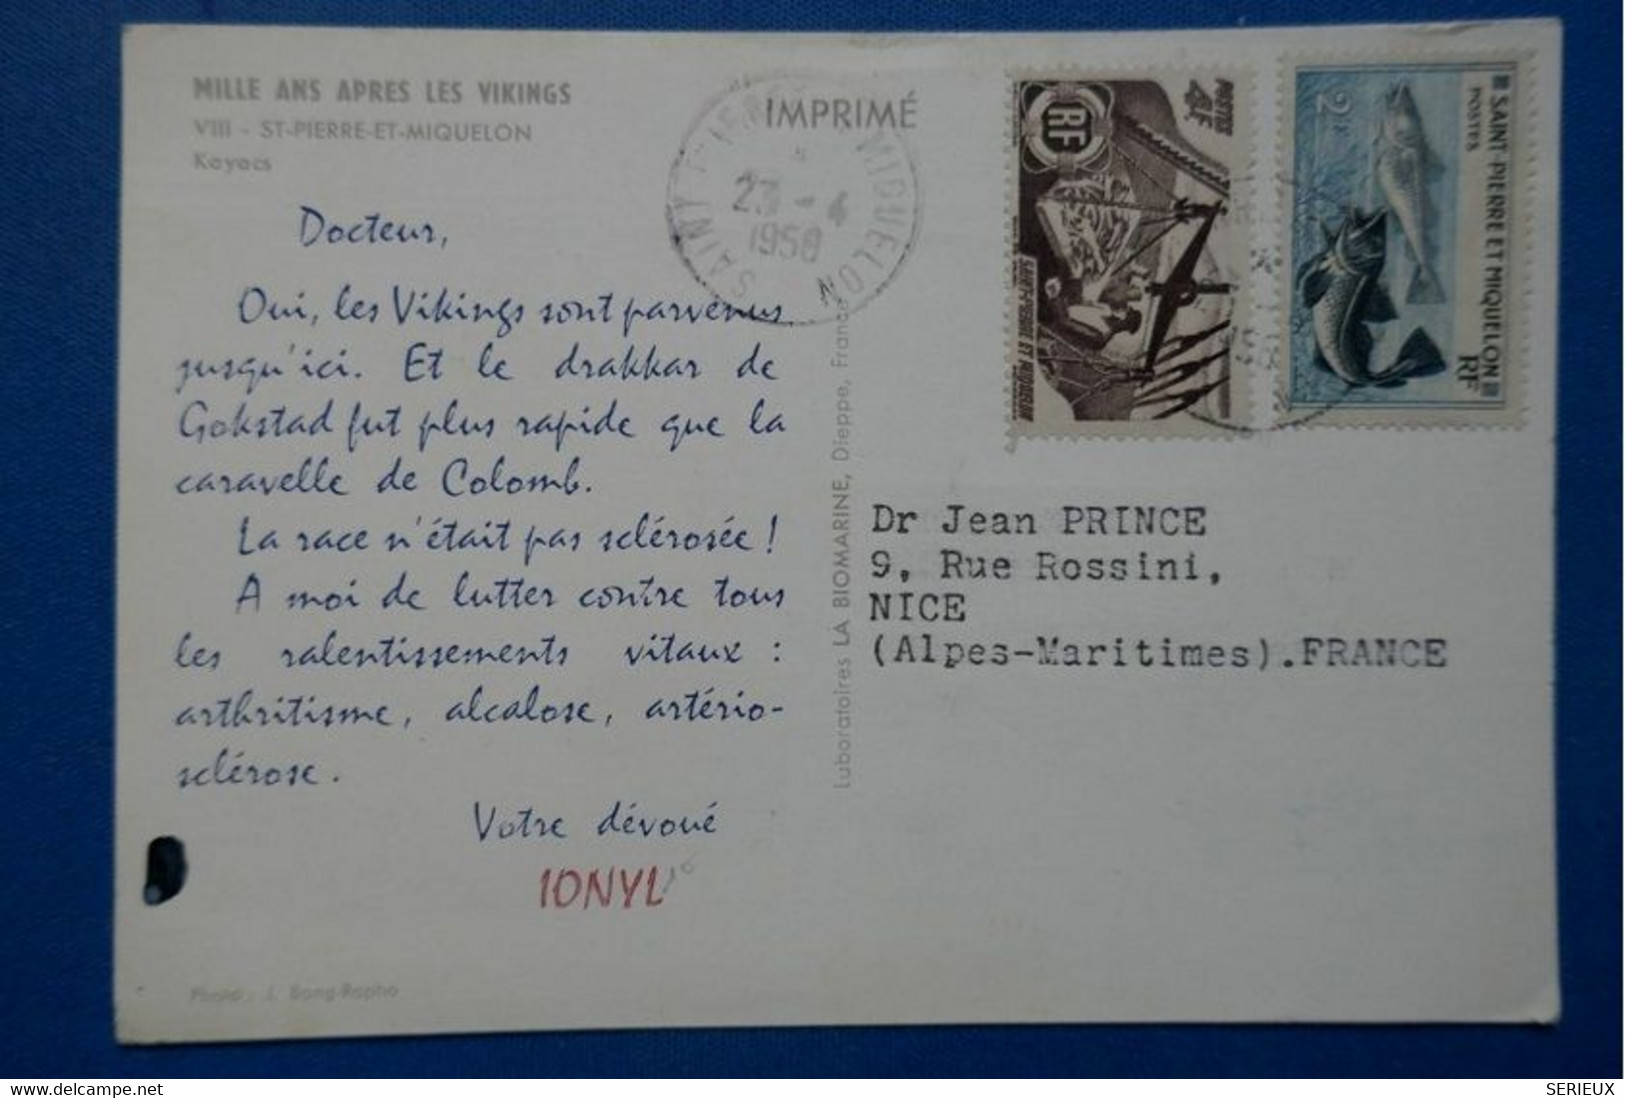 MILLE ANS APRES LES VIKINGS
VIII - ST-PIERRE-ET-MIQUELON
Kayacs
IMPRIMÉ
SAINT PIERRE MIQUELON
23 - 4
1958
POSTES
RF
SAINT-PIERRE ET MIQUELON
SAINT-PIERRE ET MIQUELON
POSTES
2F
RF
Docteur,
Oui, les Vikings sont parvenus
jusqu'ici. Et le drakkar de
Gokstad fut plus rapide que la
caravelle de Colomb.
La race n'était pas sclérosée !
A moi de lutter contre tous
les ralentissements vitaux :
arthritisme, alcalose, artério-
sclérose.
Votre dévoué
IONYL
Photo : J. Bang-Rapho
Laboratoires LA BIOMARINE, Dieppe, France
Dr Jean PRINCE
9, Rue Rossini,
NICE
(Alpes-Maritimes).FRANCE
SERIEUX